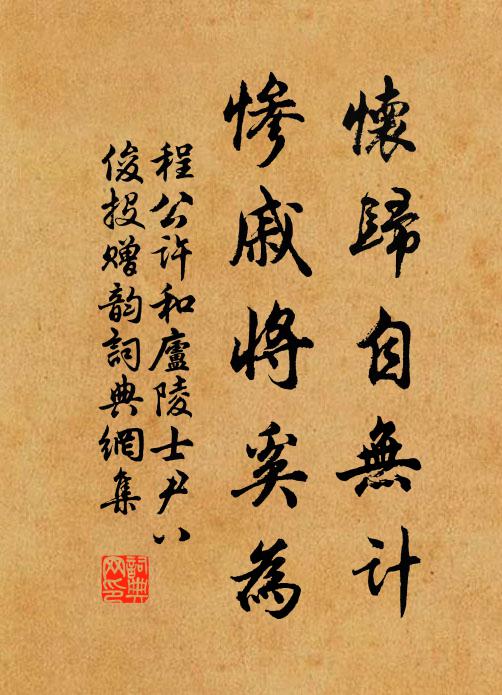 懷歸自無計
慘戚將奚為
程公許和廬陵士尹八
俊投贈韵詞典網集
詞典
网印